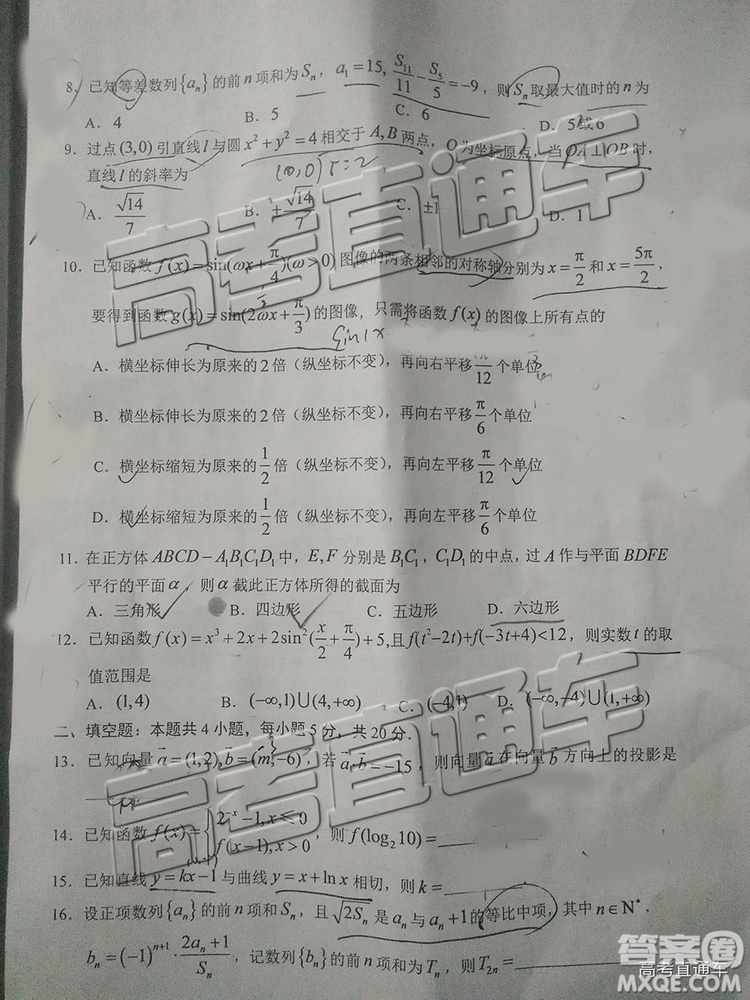 8. 已知等差数列{aₙ}的前n项和为Sₙ，a₁=15, S₁₁/11 − S₅/5 = −9，则Sₙ取最大值时的n为
A. 4 B. 5 C. 6 D. 5或6
9. 过点(3,0)引直线l与圆x²+y²=4相交于A,B两点，O为坐标原点，当OA⊥OB时，
直线l的斜率为
(0,0) r=2
A. √14/7 B. ±√14/7 C. ±1 D. 1
10. 已知函数f(x)=sin(ωx+π/4)(ω>0)图像的两条相邻的对称轴分别为x=π/2和x=5π/2，
要得到函数g(x)=sin(2ωx+π/3)的图像，只需将函数f(x)的图像上所有点的
A. 横坐标伸长为原来的2倍（纵坐标不变），再向右平移π/12个单位
B. 横坐标伸长为原来的2倍（纵坐标不变），再向右平移π/6个单位
C. 横坐标缩短为原来的1/2倍（纵坐标不变），再向左平移π/12个单位
D. 横坐标缩短为原来的1/2倍（纵坐标不变），再向左平移π/6个单位
11. 在正方体ABCD−A₁B₁C₁D₁中，E,F分别是B₁C₁，C₁D₁的中点，过A作与平面BDFE
平行的平面α，则α截此正方体所得的截面为
A. 三角形 B. 四边形 C. 五边形 D. 六边形
12. 已知函数f(x)=x³+2x+2sin²(x/2+π/4)+5,且f(t²−2t)+f(−3t+4)<12，则实数t的取
值范围是
A. (1,4) B. (−∞,1)∪(4,+∞) C. (−4,1) D. (−∞,−4)∪(1,+∞)
二、填空题：本题共4小题，每小题5分，共20分.
13. 已知向量a=(1,2),b=(m,−6)，若a·b=−15，则向量a在向量b方向上的投影是
14. 已知函数f(x)={2⁻ˣ−1,x≤0 f(x−1),x>0，则f(log₂10)=
15. 已知直线y=kx−1与曲线y=x+lnx相切，则k=
16. 设正项数列{aₙ}的前n项和Sₙ，且√2Sₙ是aₙ与aₙ+1的等比中项，其中n∈N*.
bₙ=(−1)ⁿ⁺¹·(2aₙ+1)/Sₙ，记数列{bₙ}的前n项和为Tₙ，则T₂ₙ=
高考直通车
高考直通车
高考直通车
答案圈
MXQE.COM
高考直通车